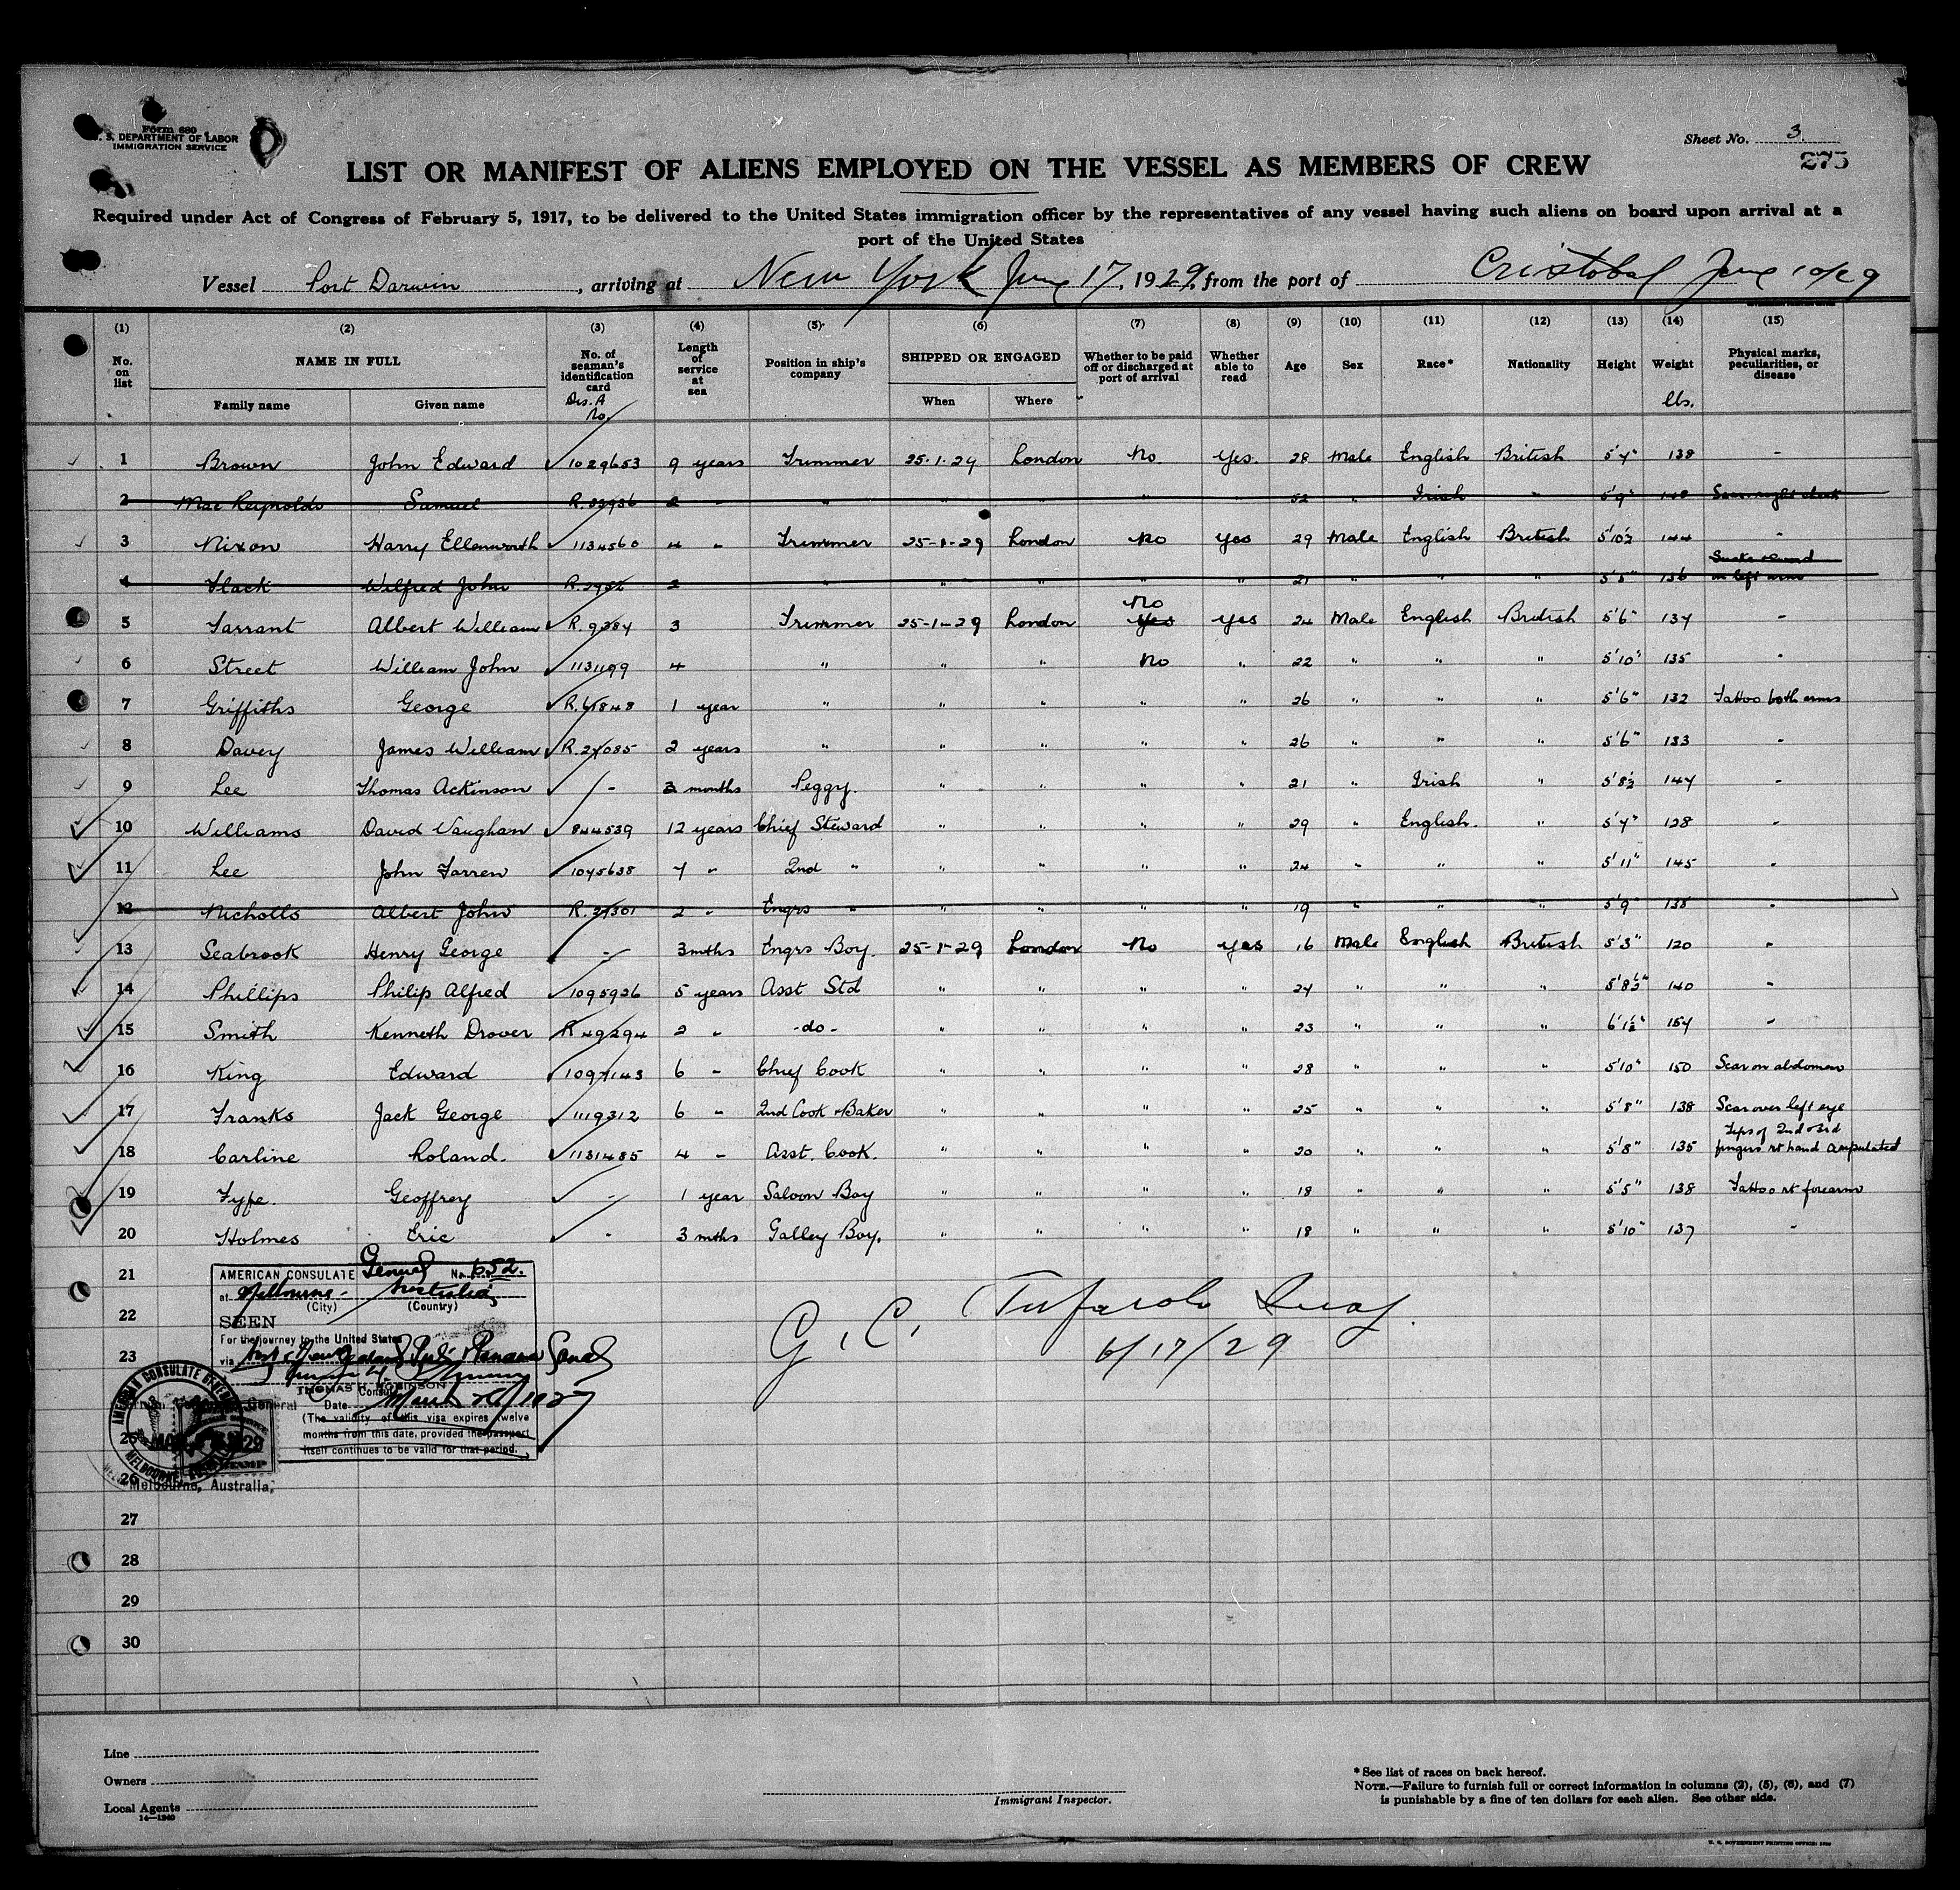 Form 680
U. S. DEPARTMENT OF LABOR
IMMIGRATION SERVICE
Sheet No. 3
275
LIST OR MANIFEST OF ALIENS EMPLOYED ON THE VESSEL AS MEMBERS OF CREW
Required under Act of Congress of February 5, 1917, to be delivered to the United States immigration officer by the representatives of any vessel having such aliens on board upon arrival at a
port of the United States
Vessel Port Darwin, arriving at New York June 17, 1929, from the port of Cristobal June 10/29
(1) (2) (3) (4) (5) (6) (7) (8) (9) (10) (11) (12) (13) (14) (15)
No. on list NAME IN FULL No. of seaman's identification card Length of service at sea Position in ship's company SHIPPED OR ENGAGED Whether to be paid off or discharged at port of arrival Whether able to read Age Sex Race* Nationality Height Weight Physical marks, peculiarities, or disease
Family name Given name Dis. A No. When Where lbs.
1 Brown John Edward 1029653 9 years Trimmer 25-1-29 London No. Yes. 28 Male English British 5'4" 138 -
2 Mac Reynolds Samuel R.33936 2 " " " " " 52 " Irish " 5'9" 148 Scar right cheek
3 Nixon Harry Ellenworth 1134560 4 " Trimmer 25-1-29 London No Yes 29 Male English British 5'10½ 144 "
4 Slack Wilfred John 2 " " " " " 21 " " " 5'5" 136 on left arm
5 Tarrant Albert William R.9284 3 Trimmer 25-1-29 London No Yes Yes 24 Male English British 5'6" 134 -
6 Street William John 1131199 4 " " " No " 22 " " " 5'10" 135 "
7 Griffiths George R.61848 1 year " " " " " 26 " " " 5'6" 132 Tattoo both arms
8 Davey James William R.24085 2 years " " " " " 26 " " " 5'6" 133 "
9 Lee Thomas Ackinson - 3 months Peggy. " " " " 21 " Irish " 5'8½ 144 -
10 Williams David Vaughan 844539 12 years Chief Steward " " " " 29 " English. " 5'4" 128 -
11 Lee John Farren 1045638 4 " 2nd " " " " " 24 " " " 5'11" 145 "
12 Nicholls Albert John R.24301 2 " Engrs " " " " " 19 " " " 5'9" 138 "
13 Seabrook Henry George - 3 mths Engrs Boy. 25-1-29 London No Yes 16 Male English British 5'3" 120 "
14 Phillips Philip Alfred 1095926 5 years Asst Std " " " " 24 " " " 5'8½" 140 "
15 Smith Kenneth Drover R 49294 2 " -do- " " " " 23 " " " 6'1½" 154 "
16 King Edward 1094143 6 " Chief Cook " " " " 28 " " " 5'10" 150 Scar on abdomen
17 Franks Jack George 1119312 6 " 2nd Cook & Baker " " " " 25 " " " 5'8" 138 Scar over left eye
18 Carline Roland. 1131485 4 " Asst. Cook. " " " " 20 " " " 5'8" 135 Tips of 2nd & 3rd fingers rt hand amputated
19 Fype. Geoffrey - 1 year Saloon Boy " " " " 18 " " " 5'5" 138 Tattoo rt forearm
20 Holmes Eric - 3 mths Galley Boy. " " " " 18 " " " 5'10" 137 "
21
22
23
25
26
27
28
29
30
AMERICAN CONSULATE General No. 652.
at Melbourne - Australia
(City) (Country)
SEEN
For the journey to the United States
via Panama Canal
THOMAS H. ROBINSON
Consul
Date March 26/1929
(The validity of this visa expires twelve
months from this date, provided the passport
itself continues to be valid for that period.
AMERICAN CONSULATE GENERAL
MELBOURNE
Melbourne, Australia,
G. C.
6/17/29
Line
Owners
Local Agents
14—1240
Immigrant Inspector.
* See list of races on back hereof.
NOTE.—Failure to furnish full or correct information in columns (2), (5), (6), and (7)
is punishable by a fine of ten dollars for each alien. See other side.